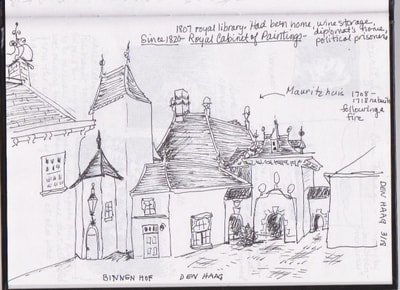 1807 royal library. Had been home, wine storage,
diplomat's home,
Since 1820- Royal Cabinet of Paintings-
political prisoners
Mauritzhuis 1708-
1718 rebuilt
following a
fire
DEN HAAG 3/18
BINNEN HOF DEN HAAG